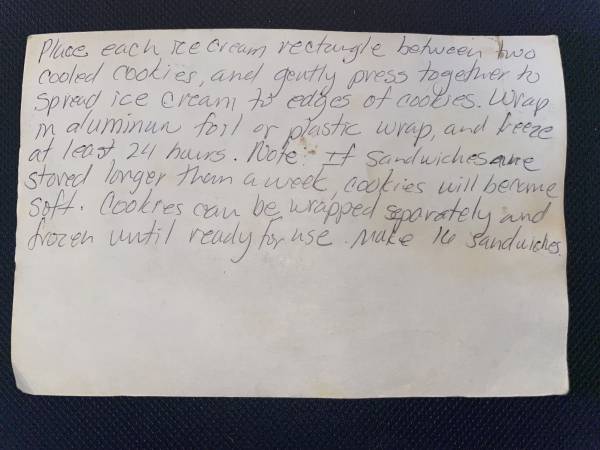 Place each ice cream rectangle between two
cooled cookies, and gently press together to
spread ice cream to edges of cookies. Wrap
in aluminum foil or plastic wrap, and freeze
at least 24 hours. Note: If sandwiches are
stored longer than a week, cookies will become
soft. Cookies can be wrapped separately and
frozen until ready for use. Make 16 sandwiches.